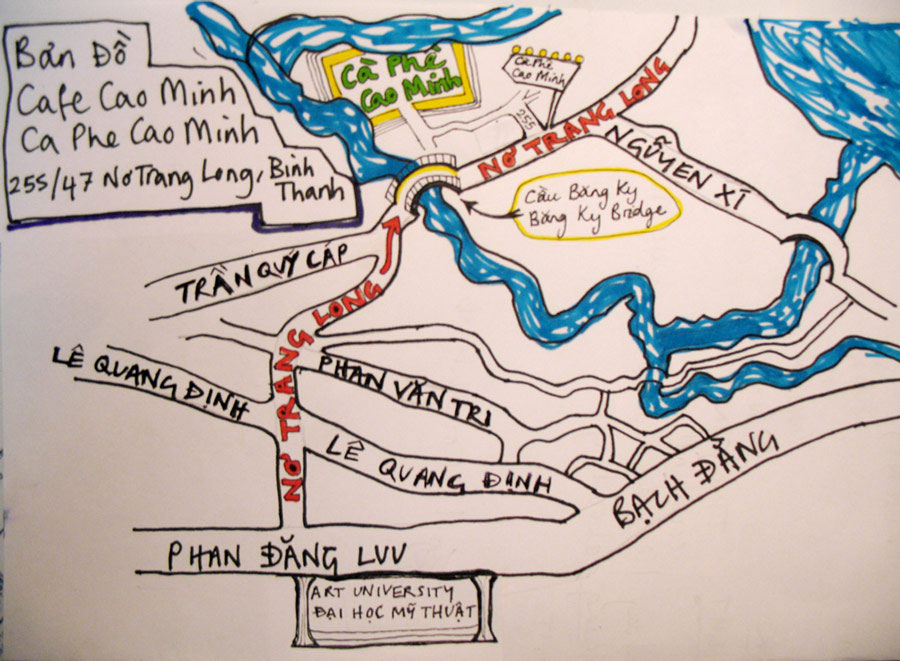 Bản Đồ
Cafe Cao Minh
Ca Phe Cao Minh
255/47 Nơ Trang Long, Binh
Thanh
Cà Phê
Cao Minh
Cà Phê
Cao Minh
255
NƠ TRANG LONG
NGUYỄN XÍ
Cầu Băng Ky
Băng Ky Bridge
TRẦN QUÝ CÁP
NƠ TRANG LONG
LÊ QUANG ĐỊNH
PHAN VĂN TRỊ
LÊ QUANG ĐỊNH
BẠCH ĐẰNG
PHAN ĐĂNG LƯU
ART UNIVERSITY
ĐẠI HỌC MỸ THUẬT